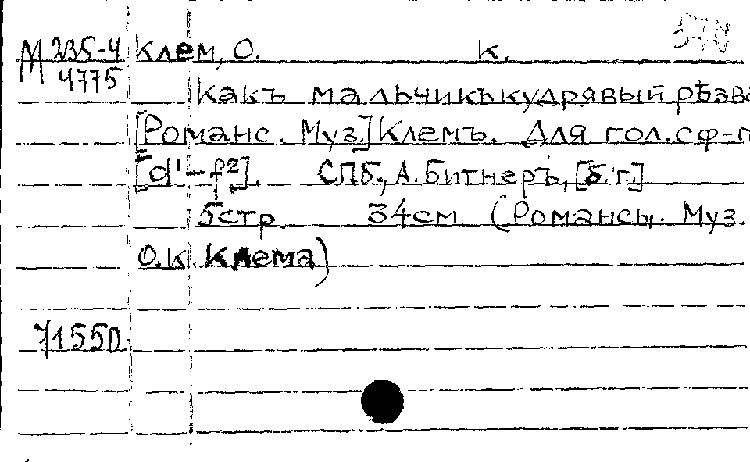 М 235-4 Клем, О. К.
4775
Какъ мальчикъ кудрявый рѣзва
[Романс. Муз.] Клемъ. Для гол. с ф-п
[d¹-f²]. СПБ., А. Битнеръ, [б.г.]
5 стр. 34 см (Романсы. Муз.
О.К. Клема)
71550